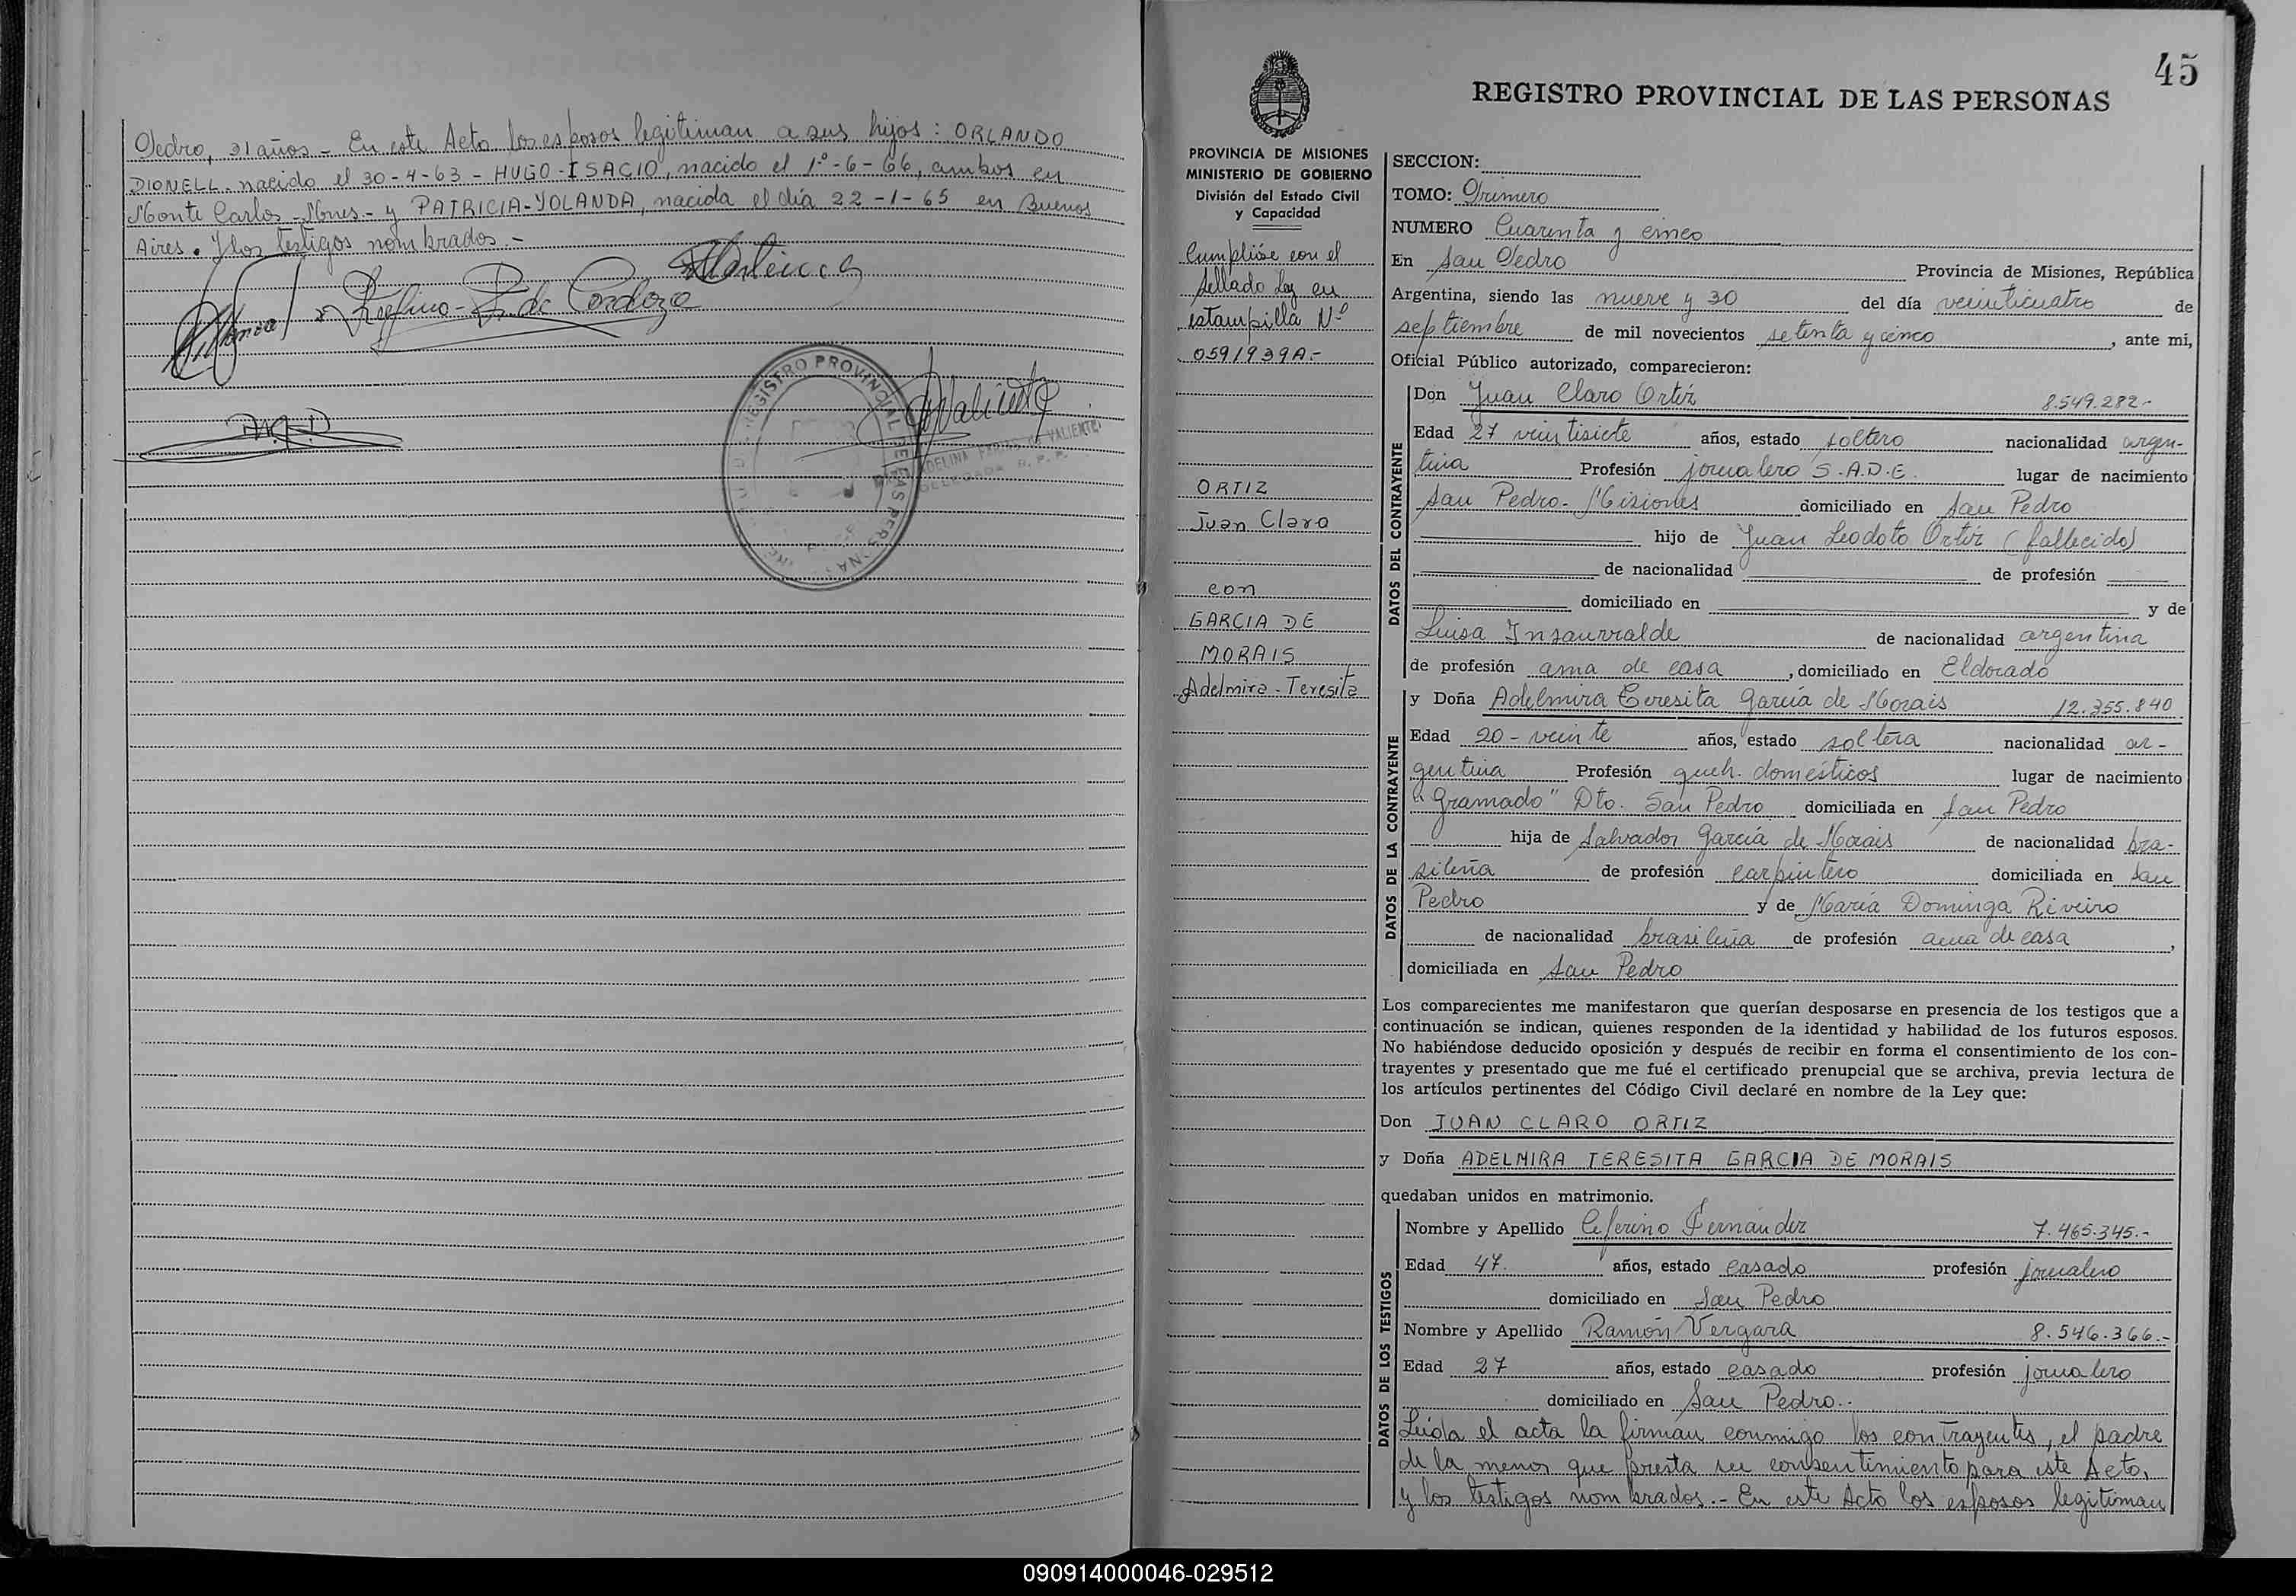 Pedro, 21 años - En este Acto los esposos legitiman a sus hijos: ORLANDO
DIONELL. nacido el 30-4-63 - HUGO-ISACIO, nacido el 1º-6-66, ambos en
Monte Carlos - Mnes.- y PATRICIA-YOLANDA, nacida el día 22-1-65 en Buenos
Aires. Y los testigos nombrados.-
de Cardozo
REGISTRO PROVINCIAL DE LAS PERSONAS
VALIENTE
45
REGISTRO PROVINCIAL DE LAS PERSONAS
PROVINCIA DE MISIONES
MINISTERIO DE GOBIERNO
División del Estado Civil
y Capacidad
Cumplióse con el
sellado Ley en
estampilla Nº
0591939A.-
ORTIZ
Juan Claro
con
GARCIA DE
MORAIS
Adelmira-Teresita
SECCION:
TOMO: Primero
NUMERO Cuarenta y cinco
En San Pedro Provincia de Misiones, República
Argentina, siendo las nueve y 30 del día veinticuatro de
septiembre de mil novecientos setenta y cinco, ante mi,
Oficial Público autorizado, comparecieron:
DATOS DEL CONTRAYENTE
Don Juan Claro Ortíz 8.549.282.-
Edad 27 veintisiete años, estado soltero nacionalidad argen-
tina Profesión jornalero S.A.D.E. lugar de nacimiento
San Pedro - Misiones domiciliado en San Pedro
hijo de Juan Leodoto Ortíz (fallecido)
de nacionalidad de profesión
domiciliado en y de
Luisa Insaurralde de nacionalidad argentina
de profesión ama de casa, domiciliado en Eldorado
DATOS DE LA CONTRAYENTE
y Doña Adelmira Teresita García de Morais 12.355.840
Edad 20 - veinte años, estado soltera nacionalidad ar-
gentina Profesión queh. domésticos lugar de nacimiento
"Gramado" Dto. San Pedro domiciliada en San Pedro
hija de Salvador García de Morais de nacionalidad bra-
sileña de profesión carpintero domiciliada en San
Pedro y de María Dominga Riveiro
de nacionalidad brasileña de profesión ama de casa,
domiciliada en San Pedro
Los comparecientes me manifestaron que querían desposarse en presencia de los testigos que a
continuación se indican, quienes responden de la identidad y habilidad de los futuros esposos.
No habiéndose deducido oposición y después de recibir en forma el consentimiento de los con-
trayentes y presentado que me fué el certificado prenupcial que se archiva, previa lectura de
los artículos pertinentes del Código Civil declaré en nombre de la Ley que:
Don JUAN CLARO ORTIZ
y Doña ADELMIRA TERESITA GARCIA DE MORAIS
quedaban unidos en matrimonio.
DATOS DE LOS TESTIGOS
Nombre y Apellido Ceferino Fernández 7.465.345.-
Edad 47. años, estado casado profesión jornalero
domiciliado en San Pedro
Nombre y Apellido Ramón Vergara 8.546.366.-
Edad 27 años, estado casado profesión jornalero
domiciliado en San Pedro.
Leída el acta la firman conmigo los contrayentes, el padre
de la menor que presta su consentimiento para este Acto,
y los testigos nombrados.- En este Acto los esposos legitiman
090914000046-029512